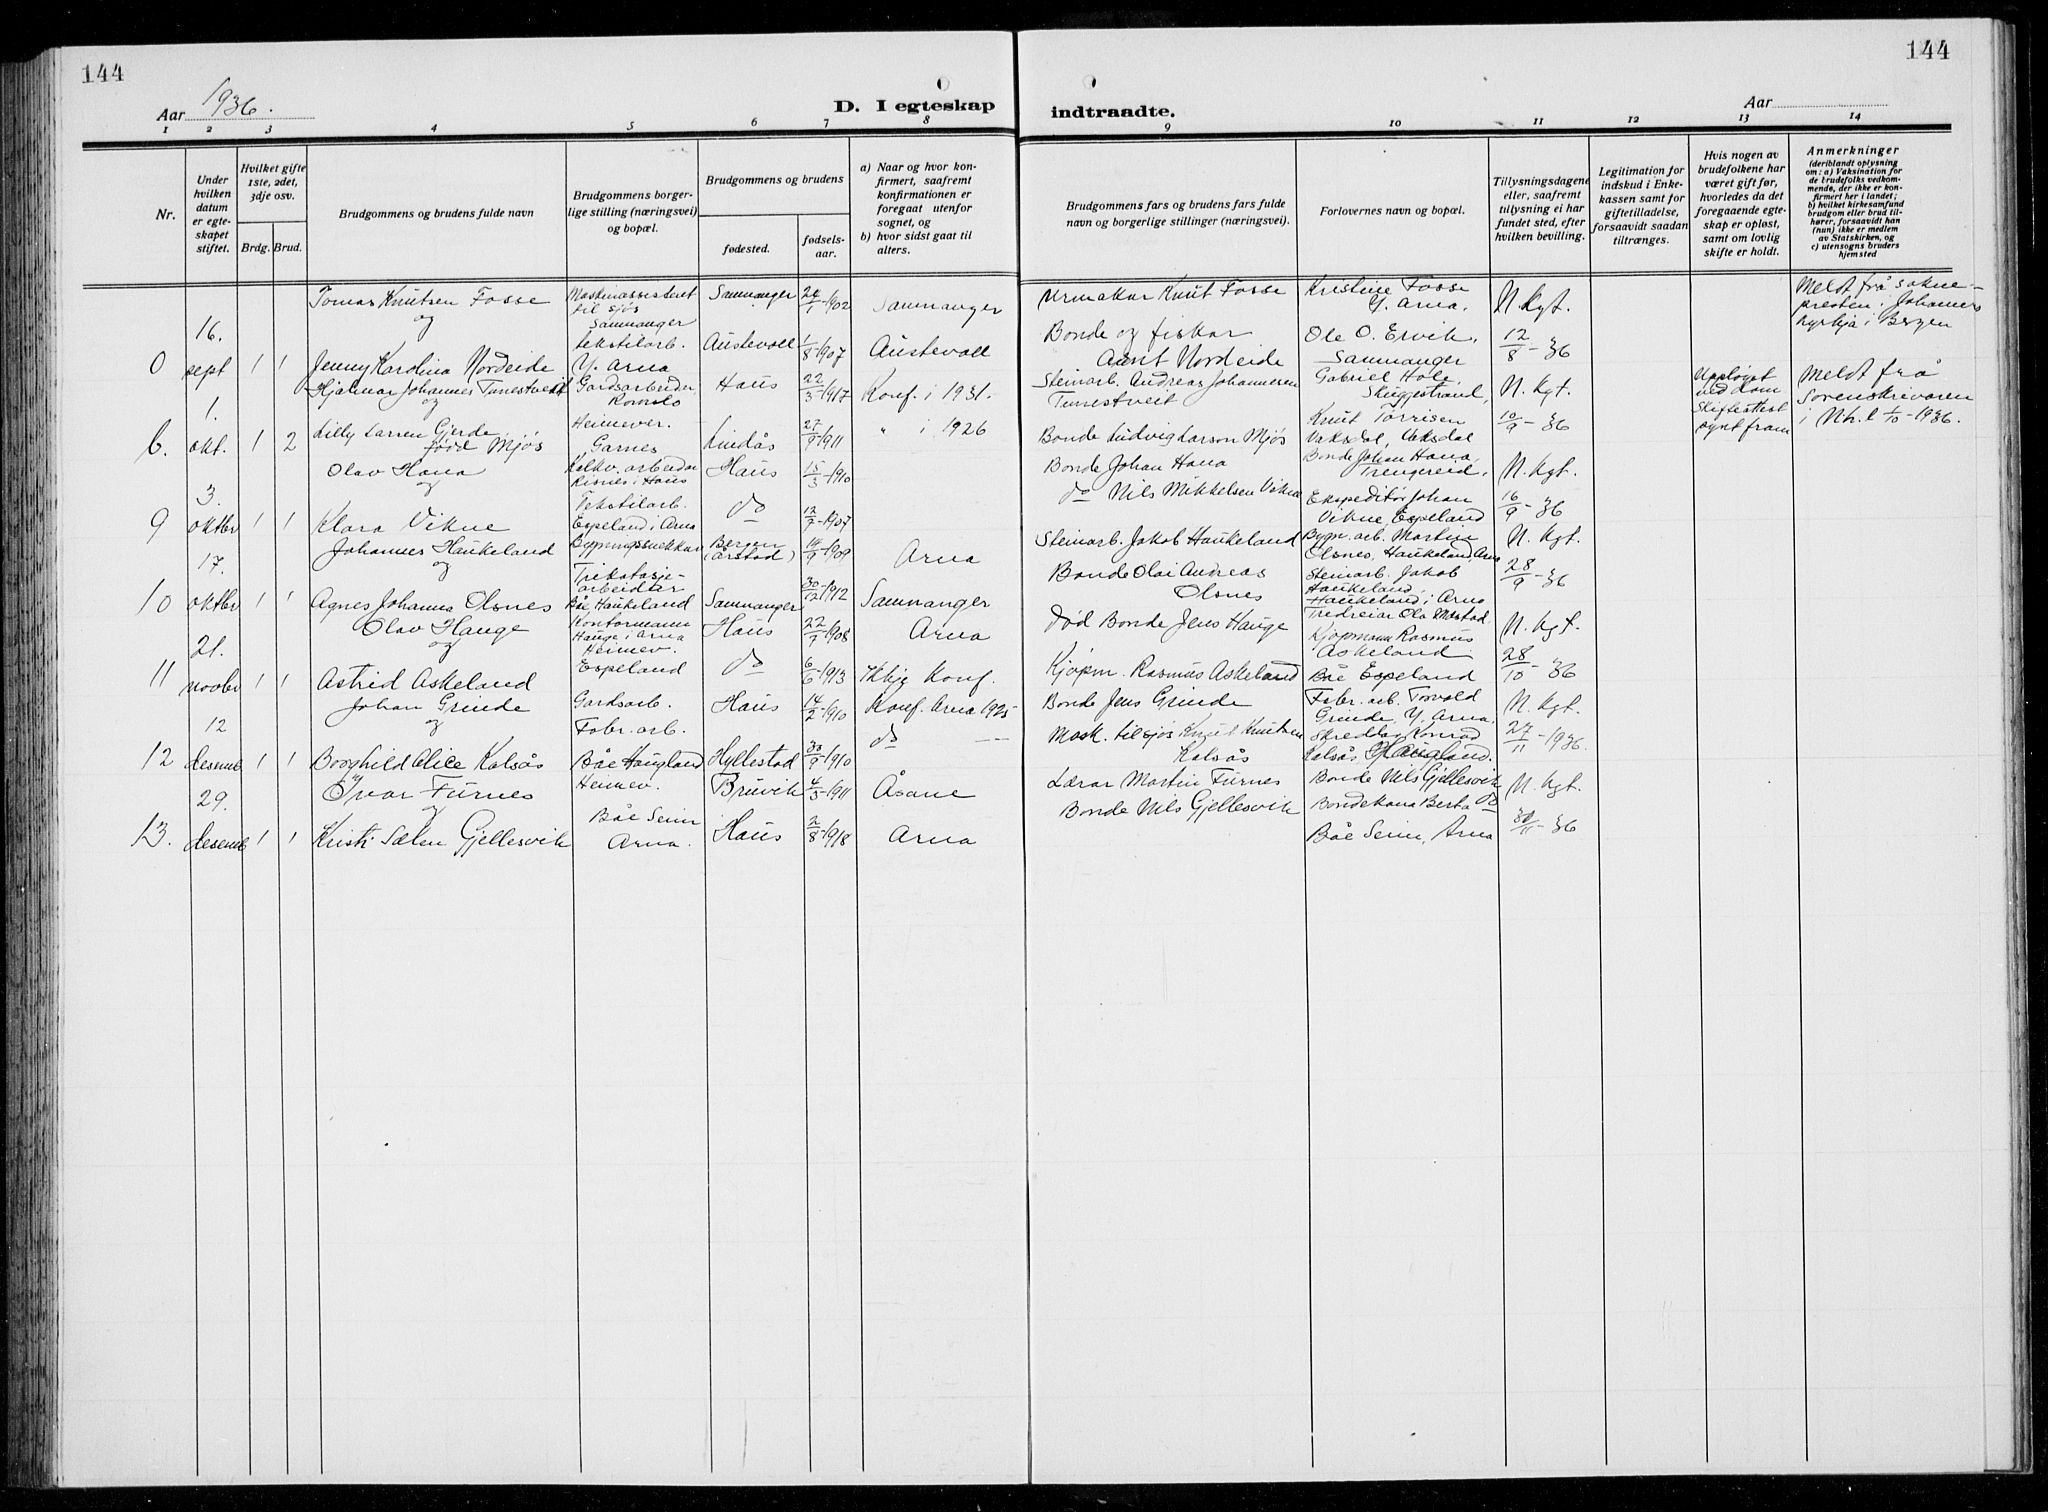 144
144
Aar 1936.
D. I egteskap
indtraadte.
Aar
1 2 3 4 5 6 7 8 9 10 11 12 13 14
Nr.
Under hvilken datum er egteskapet stiftet.
Hvilket gifte 1ste, 2det, 3dje osv.
Brdg. Brud.
Brudgommens og brudens fulde navn
Brudgommens borgerlige stilling (næringsvei) og bopæl.
Brudgommens og brudens
fødested.
fødselsaar.
a) Naar og hvor konfirmert, saafremt konfirmationen er foregaat utenfor sognet, og
b) hvor sidst gaat til alters.
Brudgommens fars og brudens fars fulde navn og borgerlige stillinger (næringsvei).
Forlovernes navn og bopæl.
Tillysningsdagene eller, saafremt tillysning ei har fundet sted, efter hvilken bevilling.
Legitimation for indskud i Enkekassen samt for giftetilladelse, forsaavidt saadan tiltrænges.
Hvis nogen av brudefolkene har været gift før, hvorledes da det foregaaende egteskap er opløst, samt om lovlig skifte er holdt.
Anmerkninger
(deriblandt oplysning om: a) Vaksination for de brudefolks vedkommende, der ikke er konfirmert her i landet; b) hvilket kirkesamfund brudgom eller brud tilhører, forsaavidt han (hun) ikke er medlem av Statskirken, og c) utensogns bruders hjemsted
0 16. sept 1 1
Tomas Knutsen Fosse
og
Jenny Karolina Nordeide
Maskinassistent
til sjøs
Samnanger
tekstilarb.
Y. Arna
Samnanger
1902
Samnanger
Austevoll 1/8-1907 Austevoll
Urmakar Knut Fosse
Bonde og fiskar
Nordeide
Kristine Fosse
Y. Arna.
Ole O. Ervik,
Samnanger
N. Kgt.
12/8-36
Meldt frå sokne-
presten i Johannes
kyrkja i Bergen
6. 1. okt. 1 2
Hjalmar Johannes Tunestveit
og
Lilly Larsen Gjerde
født Mjøs
Gardsarbeider,
Romslo
Heimever.
Garnes
Haus 22/3-1917 Konf. i 1931.
Lindås 27/9-1911 " i 1926
Steinarb. Andreas Johannesen
Tunestveit
Bonde Ludvig Larson Mjøs
Gabriel Hole,
Skuggestrand,
Knut Torrisen
Vaksdal, Vaksdal
N. Kgt.
10/9-36
Uppløyst
ved dom
Skifteattest
synt fram
Meldt frå
Sorenskrivaren
i Nhr.l. 1/10-1936.
9 3. oktbr 1 1
Olav Hana
og
Klara Vikne
Kalkv. arbeidar
Risnes i Haus
Tekstilarb.
Espeland i Arna
Haus 15/3-1910
do 12/7-1907
Bonde Johan Hana
do Nils Mikkelsen Vikne
Bonde Johan Hana,
Trengereid.
Ekspeditør Johan
Vikne, Espeland
N. Kgt.
16/9-36
10 17. oktbr 1 1
Johannes Haukeland
og
Agnes Johanna Olsnes
Bygningssnekkar
Trikotasje-
arbeidter
Båe, Haukeland
Bergen
(Årstad) 14/9-1909 Arna
Samnanger 30/12-1912 Samnanger
Steinarb. Jakob Haukeland
Bonde Olai Andreas
Olsnes
Bygn. arb. Martin
Olsnes, Haukeland, Arna
Steinarb. Jakob
Haukeland,
Haukeland i Arna
N. Kgt.
28/9-36
11 21. novbr 1 1
Olav Hauge
og
Astrid Askeland
Kontormann
Hauge i Arna
Heimev.
Espeland
Haus 22/7-1908 Arna
do 6/6-1913 Ikkje Konf.
død Bonde Jens Hauge
Kjøpm. Rasmus Askeland
Tredreiar Ola Mostad
Kjøpmann Rasmus
Askeland
Båe Espeland
N. Kgt.
28/10-36
12 12 desemb 1 1
Johan Grinde
og
Borghild Alice Kalsås
Gardsarb.
Fabr. arb.
Båe Haugland
Haus 14/2-1910 Konf. Arna 1925
Hyllestad 30/9-1910 do
Bonde Jens Grinde
Mask. til sjøs Knut Knutsen
Kalsås
Fabr. arb. Torvald
Grinde, Y. Arna.
Skreddar Konrad
Kalsås, Haugland.
N. Kgt.
27/11-1936.
13. 29. desemb 1 1
Ivar Furnes
og
Kristi Sælen Gjellesvik
Heimev.
Båe Seim
Arna.
Bruvik 4/5-1911 Åsane
Haus 2/8-1918 Arna
Lærar Martin Furnes
Bonde Nils Gjellesvik
Bonde Nils Gjellesvik
Bondekona Berta do
Båe Seim, Arna
N. Kgt.
30/11-36